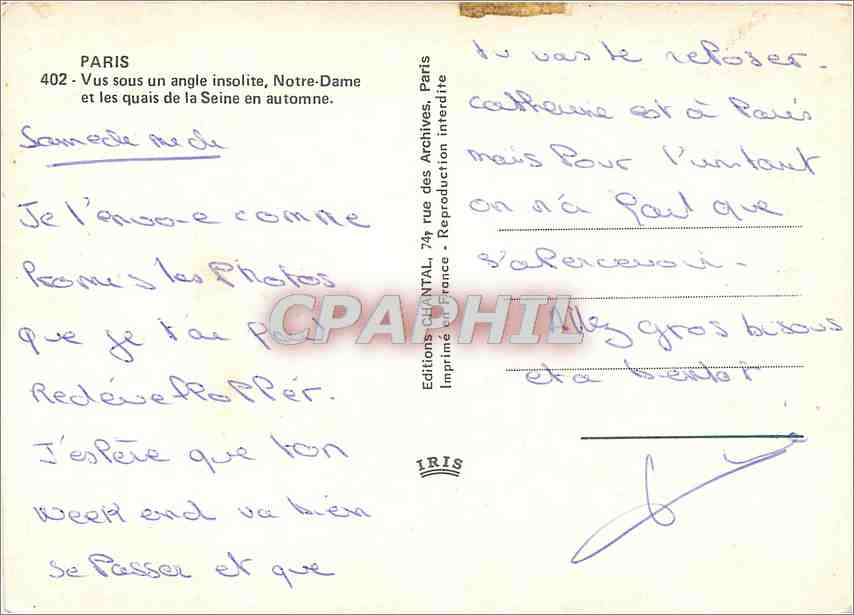 PARIS
402 - Vus sous un angle insolite, Notre-Dame
et les quais de la Seine en automne.
Samedi midi
Je t'envoie comme
Promis les Photos
que je t'ai fait
Redéveflopper.
J'espère que ton
week end va bien
se Passer et que
Editions CHANTAL, 74, rue des Archives, Paris
Imprimé en France - Reproduction interdite
IRIS
tu vas te reposer.
Catherine est à Paris
mais Pour l'instant
on n'a fait que
s'aPercevoir.
Allez gros bisous
et a bientot
CPAPHIL